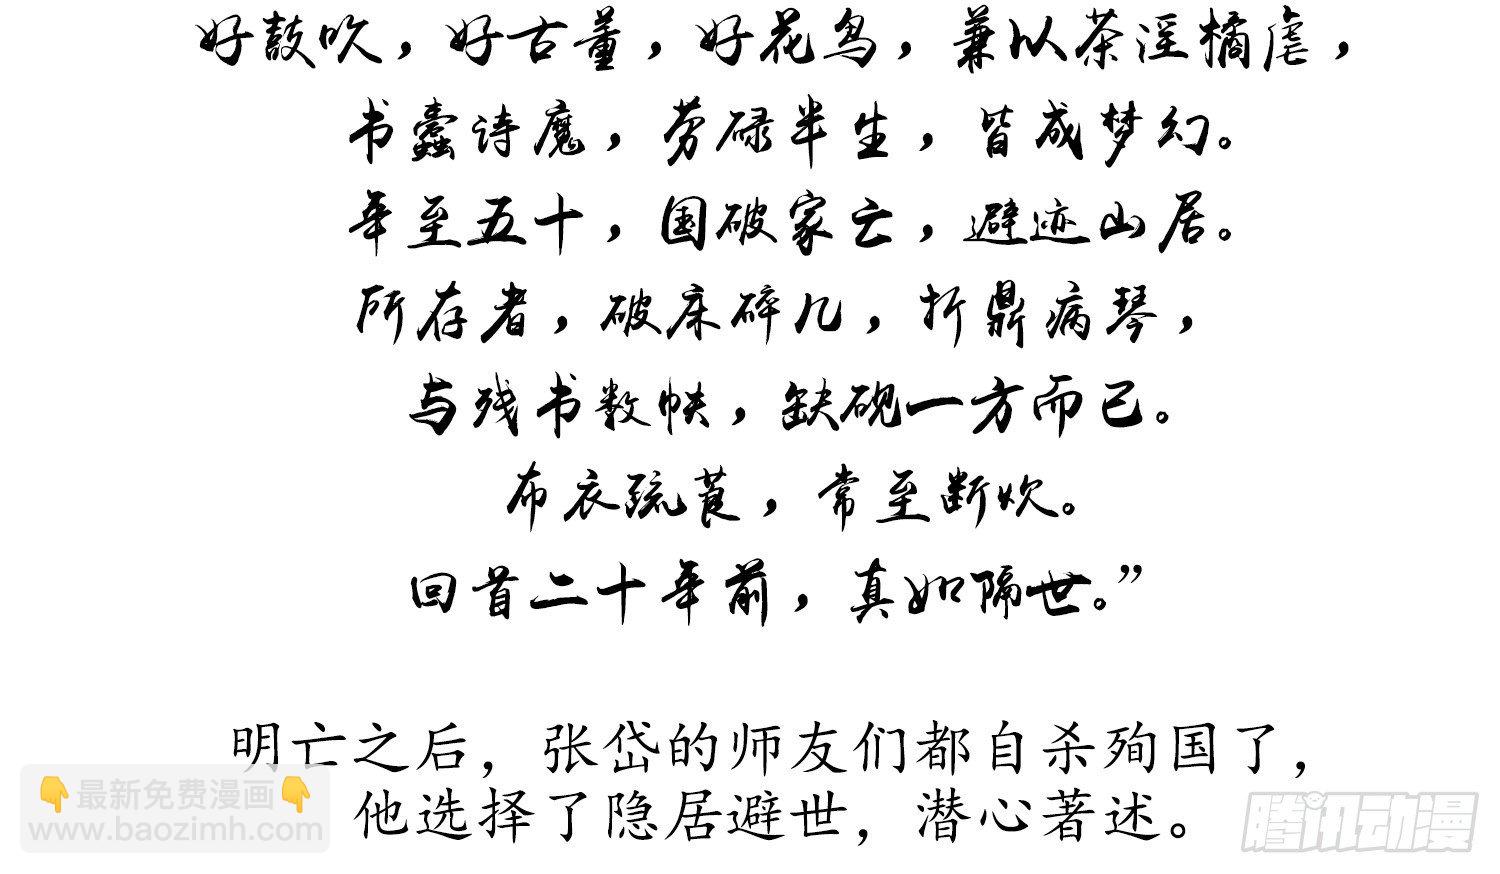 好鼓吹，好古董，好花鸟，兼以茶淫橘虐，
书蠹诗魔，劳碌半生，皆成梦幻。
年至五十，国破家亡，避迹山居。
所存者，破床碎几，折鼎病琴，
与残书数帙，缺砚一方而已。
布衣疏莨，常至断炊。
回首二十年前，真如隔世。”
明亡之后，张岱的师友们都自杀殉国了，
他选择了隐居避世，潜心著述。
👇最新免费漫画👇
www.baozimh.com
腾讯动漫